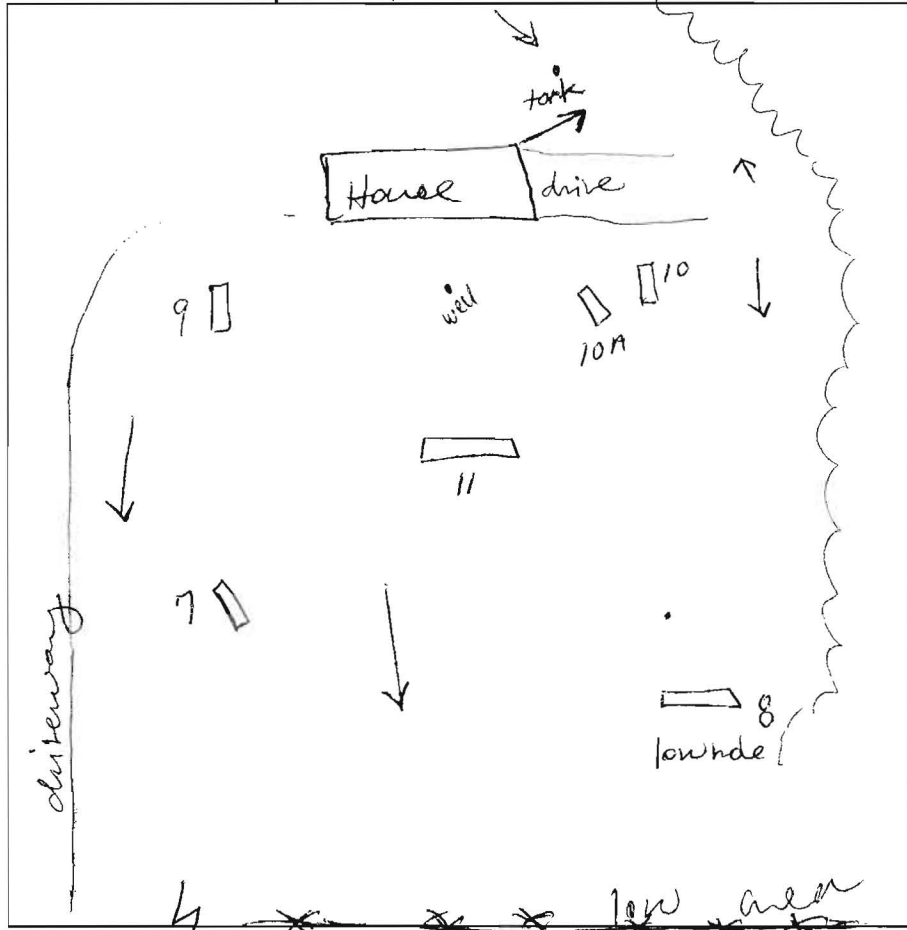 tank
House
drive
9
well
10
10A
11
7
8
driveway
low area